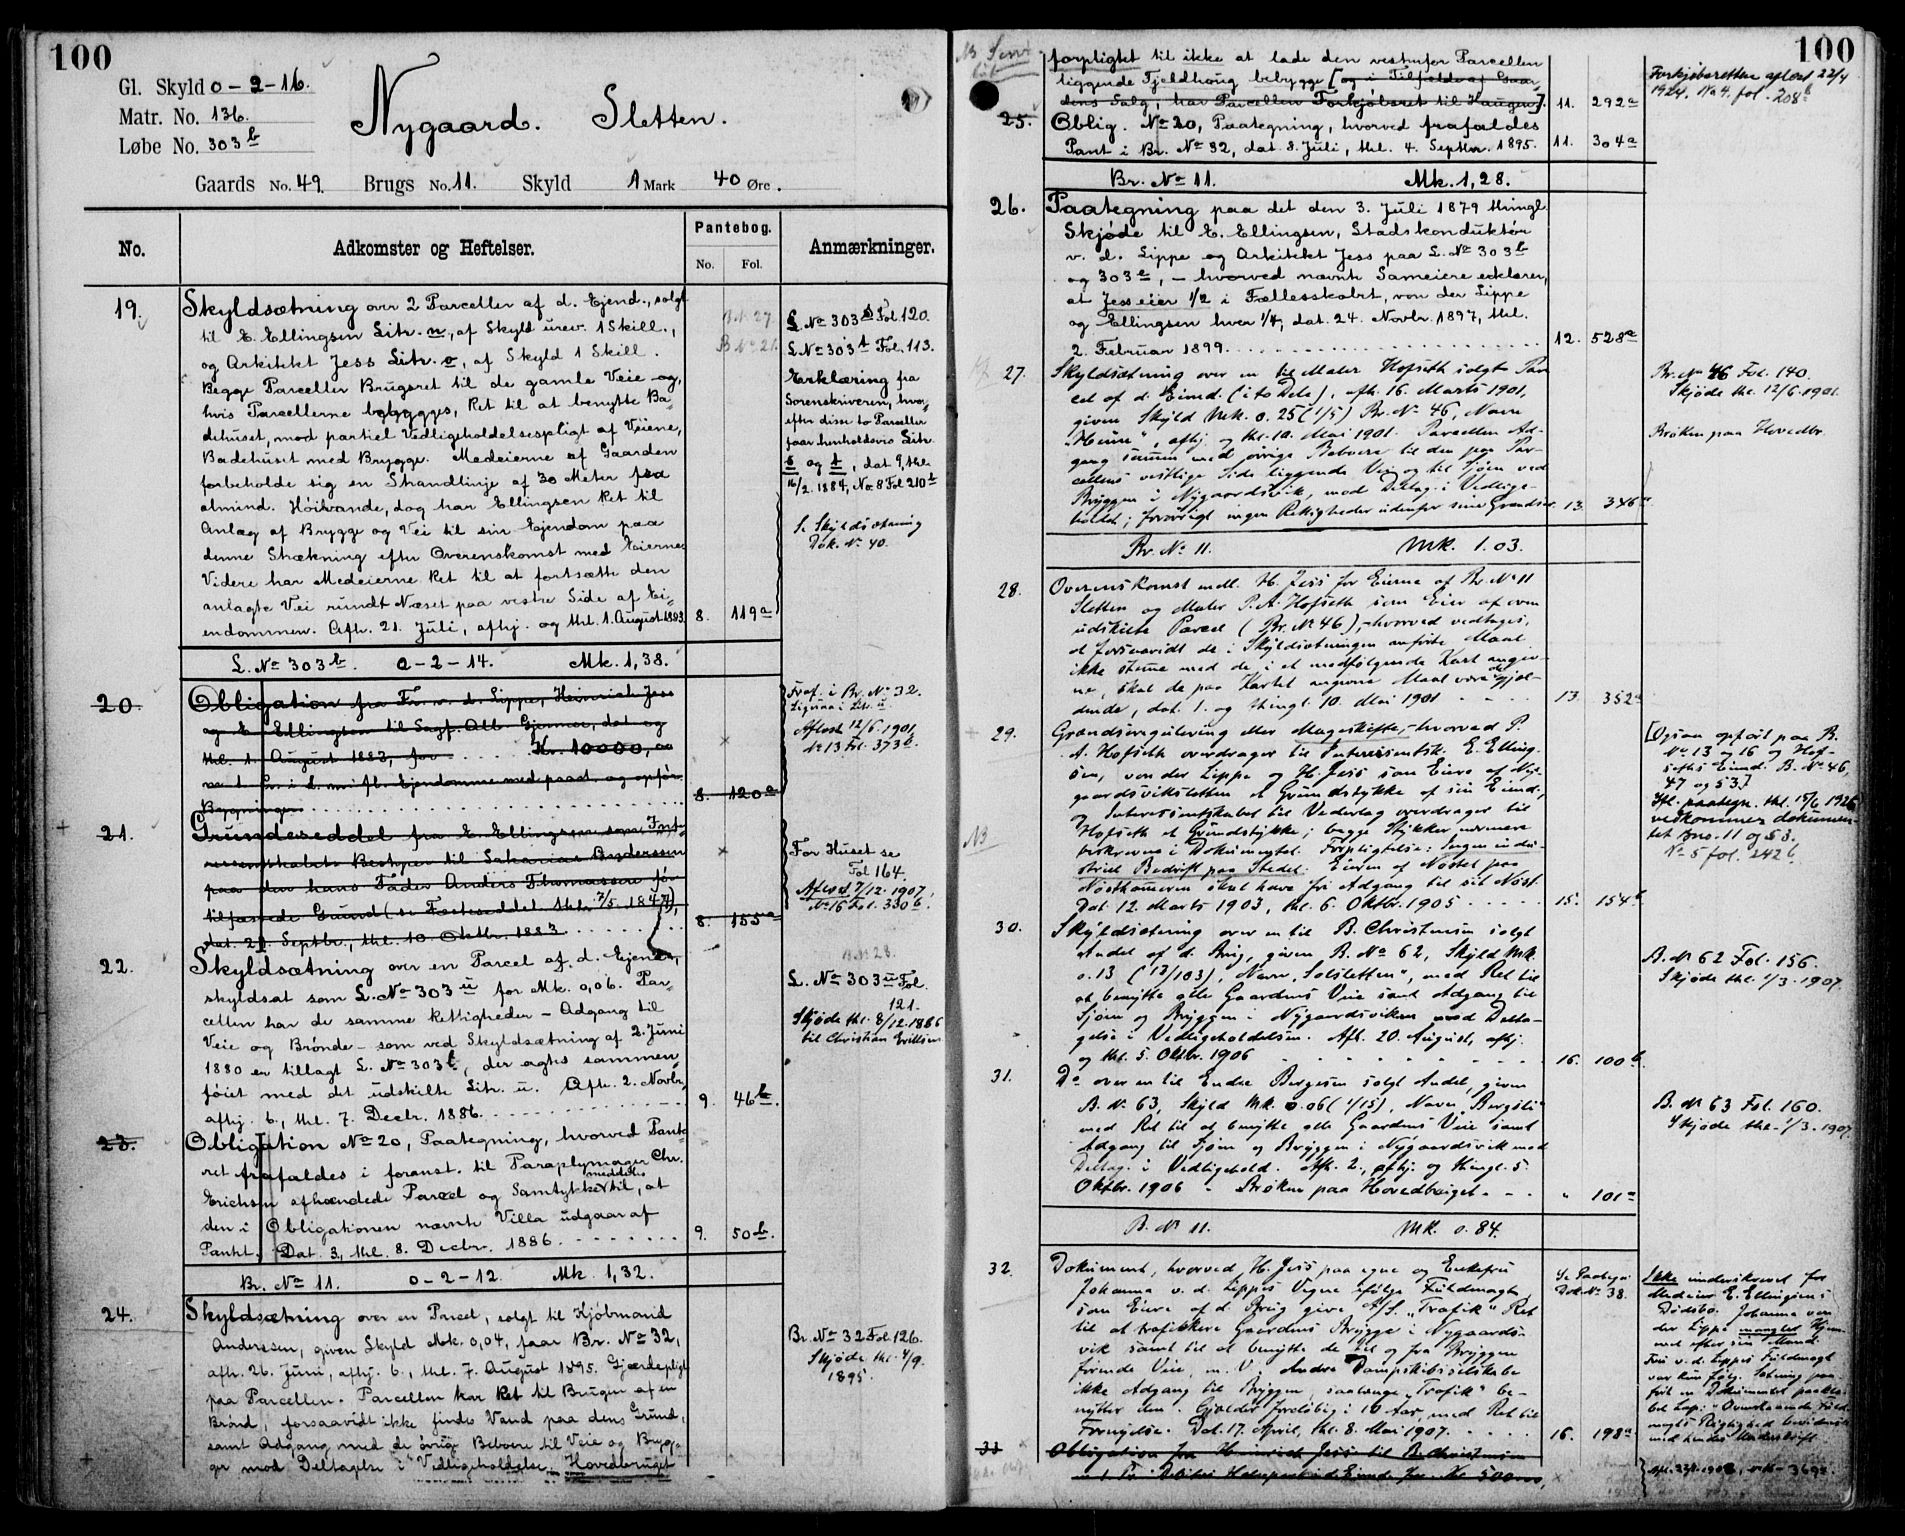 100
Gl. Skyld 0-2-16.
Matr. No. 136.
Løbe No. 303 b
Nygaard. Sletten.
Gaards No. 49. Brugs No. 11. Skyld 1 Mark 40 Øre.
No. Adkomster og Heftelser. Pantebog. No. Fol. Anmærkninger.
19. Skyldsætning over 2 Parceller af d. Ejend., solgt
til E. Ellingsen Litr. n, af Skyld urev. 1 Skill.,
og Arkitekt Jess Litr. o, af Skyld 1 Skill.
Begge Parceller Brugsret til de gamle Veie og,
hvis Parcellerne bebygges, Ret til at benytte Ba-
dehuset, mod partiel Vedligeholdelsespligt af Veiene,
Badehuset med Brygge. Medeierne af Gaarden
forbeholde sig en Strandlinje af 30 Meter fra
almind. Höivande, dog har Ellingsen Ret til
Anlæg af Brygge og Vei til sin Ejendom paa
denne Strækning efter Overenskomst med Eierne.
Videre har Medeierne Ret til at fortsætte den
anlagte Vei rundt Næset paa vestre Side af Ei-
endommen. Afh. 21. Juli, afhj. og thl. 1. August 1883. 8. 119 a
L. No 303 s Fol. 120.
L No 303 t Fol. 113.
Erklæring fra
Sorenskriveren, hvor-
efter disse to Parceller
faar henholdsvis Litr.
s og t, dat 9, thl.
16/2. 1884, No 8 Fol 210 b
Se Skyldsætning
Dok. No 40.
L. No 303 b. 0-2-14. Mk. 1,38.
20. Obligation fra Fr. v. d. Lippe, Heinrich Jess
og E Ellingsen til Sagf. Alb. Gjerner, dat og
thl. 1. August 1883, for .... Kr. 10000, ...
Bygninger 8. 120 a
Fraf. i Br. No 32.
Ligesaa i Litr. u
Aflæst 12/6. 1901,
No 13 Fol. 373 b.
21. Grundeseddel fra E. Ellingsen som Inte-
ressentskabets Bestyrer til Sakarias Andersen
paa den hans Fader Anders Thomassen før
tilfæstede Grund (se Fæsteseddel thl. 7/5 1847),
dat. 29 Septbr., thl. 10 Oktbr. 1883 8. 155 a
For Huset se
Fol 164.
Aflæst 7/12. 1907,
No 16 Fol. 330 b.
22. Skyldsætning over en Parcel af d. Ejend.,
skyldsat som L. No 303 u for Mk. 0,06. Par-
cellen har de samme Rettigheder - Adgang til
Veie og Brønde - som ved Skyldsætning af 2. Juni
1880 er tillagt L. No 303 l, der agtes sammen-
føiet med det udskilte Litr. u. Afh. 2. Novbr.,
afhj. 6., thl. 7. Decbr. 1886. 9. 46 b.
L. No 303 u Fol.
121.
Skjøde thl. 8/12. 1886
til Christian Erichsen.
23. Obligation No 20, Paategning, hvorved Pante-
ret frafaldes i foranst. til Paraplymager Chr.
Erichsen afhændede Parcel og Samtykke meddelt til, at
den i Obligationen nævnte Villa udgaar af
Pantet. Dat. 3, thl. 8. Decbr. 1886. 9. 50 b.
Br. No 11. 0-2-12. Mk. 1,32.
24. Skyldsætning over en Parcel, solgt til Kjöbmand
Anderssen, given Skyld Mk. 0,04, faar Br. No 32,
afh. 26. Juni, afhj. 6., thl. 7. August 1895. Gjærdepligt
paa Parcellen. Parcellen har Ret til Brugen af en
Brønd, forsaavidt ikke findes Vand paa dens Grund,
samt Adgang med de øvrige Beboere til Veie og Bryg-
ge mod Deltagelse i Vedligeholdelse. Hovedbruget
Br. No 32 Fol 126.
Skjøde thl. 4/9.
1895.
100
NB Servi
tut
forpligtet til ikke at lade den vestenfor Parcellen
liggende Fjeldhoug bebygge [og i Tilfælde af Gaar-
dens Salg, har Parcellen Forkjøbsret til Haugen]. 11. 292 a
Forkjøbsretten aflæst 22/4
1924. No 4. fol. 208 b
25. Oblig. No 20, Paategning, hvorved frafaldes
Pant i Br. No 32, dat. 3. Juli, thl. 4. Septbr. 1895. 11. 304 a
Br. No 11. Mk. 1,28.
26. Paategning paa det den 3. Juli 1879 thingl.
Skjøde til E. Ellingsen, Stadskonduktør
v. d. Lippe og Arkitekt Jess paa L. No 303 b
og 303 e, - hvorved nævnte Sameiere erklærer,
at Jess eier 1/2 i Fællesskabet, von der Lippe
og Ellingsen hver 1/4, dat. 24. Novbr. 1897, thl.
2. Februar 1899. 12. 528 a
27. Skyldsætning over en til Maler Hofseth solgt Par
cel af d. Eiend. (i to Dele), afh. 16. Marts 1901,
given Skyld Mk. 0.25 (1/5) Br. No 46, Navn
"Heim", afhj. og thl. 10. Mai 1901. Parcellen Ad-
gang sammen med øvrige Beboere til den paa Par-
cellens vestlige Side liggende Vei og til Sjøen ved
Bryggen i Nygaardsvik, mod Deltag. i Vedlige-
holdet; forøvrigt ingen Rettigheder udenfor sine Grændser. 13. 346 a
Br. No 46 Fol. 140.
Skjøde thl. 12/6. 1901.
Brøken paa Hovedbr.
Br. No 11. Mk. 1.03.
28. Overenskomst mell. H. Jess for Eierne af Br. No 11
Sletten og Maler P. A. Hofseth som Eier af oven
udskilte Parcel (Br. No 46) - hvorved vedtages,
at forsaavidt de i Skyldsætningen anførte Maal
ikke stemme med de i et medfølgende Kart angiv-
ne, skal de paa Kartet angivne Maal være de gjæl-
dende, dat. 1. og thingl. 10. Mai 1901 13. 352 a
29. Grændseregulering eller Mageskifte, - hvorved P.
A. Hofseth overdrager til Interessentsk. E. Elling-
sen, von der Lippe og H. Jess som Eiere af Ny-
gaardsviksletten et Grundstykke af sin Eiend.,
og Interessentskabet til Vederlag overdrager til
Hofseth et Grundstykke; begge Stykker nærmere
beskrevne i Dokumentet. Forpligtelse: Ingen indu-
striel Bedrift paa Stedet. Eieren af Nøstet paa
Nøsttomten skal have fri Adgang til sit Nøst.
Dat. 12. Marts 1903, thl. 6. Oktbr. 1905 15. 154 b
NB
[Ogsaa opført paa B.
No 13 og 16 og Hof-
seths Eiend. B. No 46,
47 og 53.]
Ifl. paategn. thl. 15/6 1926
vedkommer dokumen-
tet Bno. 11 og 53.
No 5 fol. 242 b.
30. Skyldsætning over en til B. Christensen solgt
Andel af d. Brug, given B. No 62, Skyld Mk.
0.13 (13/103), Navn "Solsletten", med Ret til
at benytte alle Gaardens Veie samt Adgang til
Sjøen og Bryggen i Nygaardsviken mod Delta-
gelse i Vedligeholdelsen. Afh. 20. August, afhj.
og thl. 5. Oktbr. 1906 16. 100 b
B. No 62 Fol. 156.
Skjøde thl. 1/3. 1907.
31. Do over en til Endre Bergesen solgt Andel, given
B. No 63, Skyld Mk. 0.06 (1/15), Navn "Bergsli"
med Ret til at benytte alle Gaardens Veie samt
Adgang til Sjøen og Bryggen i Nygaardsvik mod
Deltag. i Vedligehold. Afh. 2., afhj. og thingl. 5.
Oktbr. 1906 - Brøken paa Hovedbruget. " 101 a
B. No 63 Fol. 160.
Skjøde thl. 1/3. 1907.
B. No 11. Mk. 0.84.
32. Dokument, hvorved H. Jess paa egne og Enkefru
Johanna v. d. Lippes Vegne ifølge Fuldmagt
som Eiere af d. Brug give A/S. "Trafik" Ret
til at trafikkere Gaardens Brygge i Nygaards-
vik samt til at benytte de til og fra Bryggen
førende Veie, m. V. Andre Dampskibsselskabe
ikke Adgang til Bryggen, saalænge "Trafik" be-
nytter den. Gjælder foreløbig i 10 Aar, med Ret til
Fornyelse. Dat. 17. April, thl. 8. Mai 1907. 16. 198 a
Se Paategn.
Dok. No 38.
Ikke underskrevet for
Medeier E. Ellingsens
Dødsbo. Johanna von
der Lippe mangled Hjem-
mel efter sin Mand.
33 Obligation fra Heinrich Jess til B. Christensen